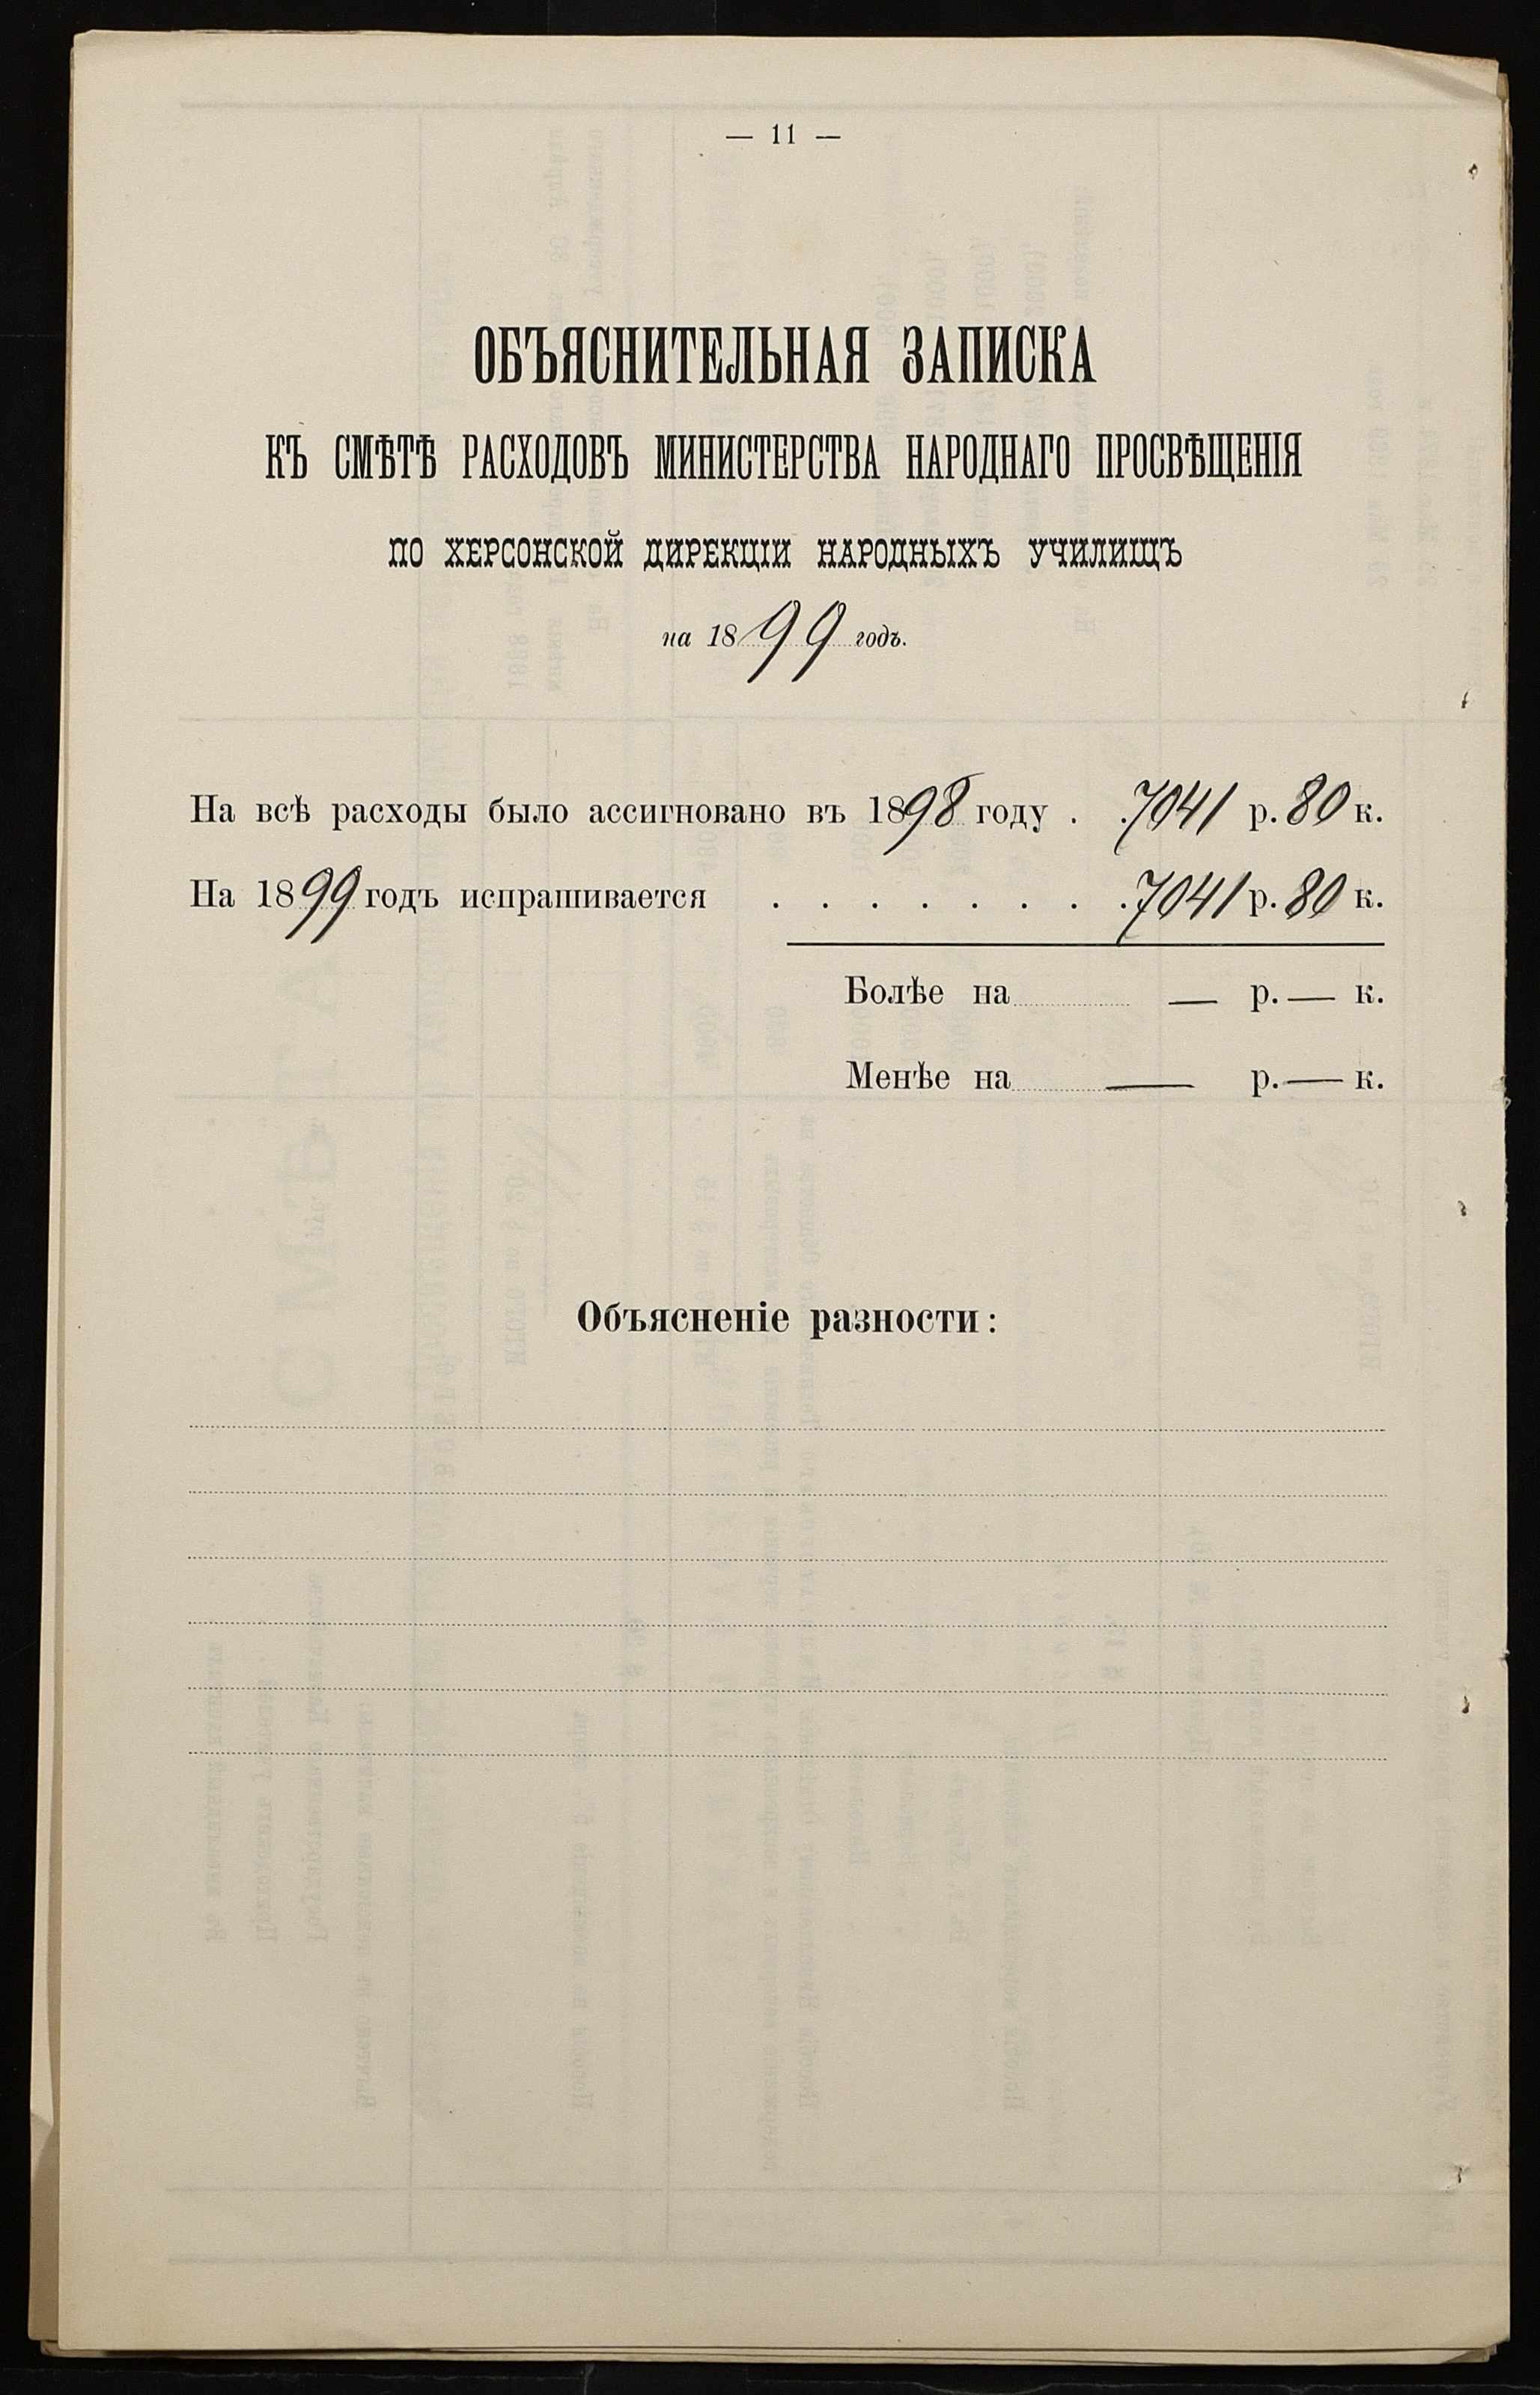 — 11 —
ОБЪЯСНИТЕЛЬНАЯ ЗАПИСКА
КЪ СМѢТѢ РАСХОДОВЪ МИНИСТЕРСТВА НАРОДНАГО ПРОСВѢЩЕНІЯ
ПО ХЕРСОНСКОЙ ДИРЕКЦІИ НАРОДНЫХЪ УЧИЛИЩЪ
на 1899 годъ.
На всѣ расходы было ассигновано въ 1898 году . . 7041 р. 80 к.
На 1899 годъ испрашивается . . . . . . . . 7041 р. 80 к.
Болѣе на — р. — к.
Менѣе на — р. — к.
Объясненіе разности: